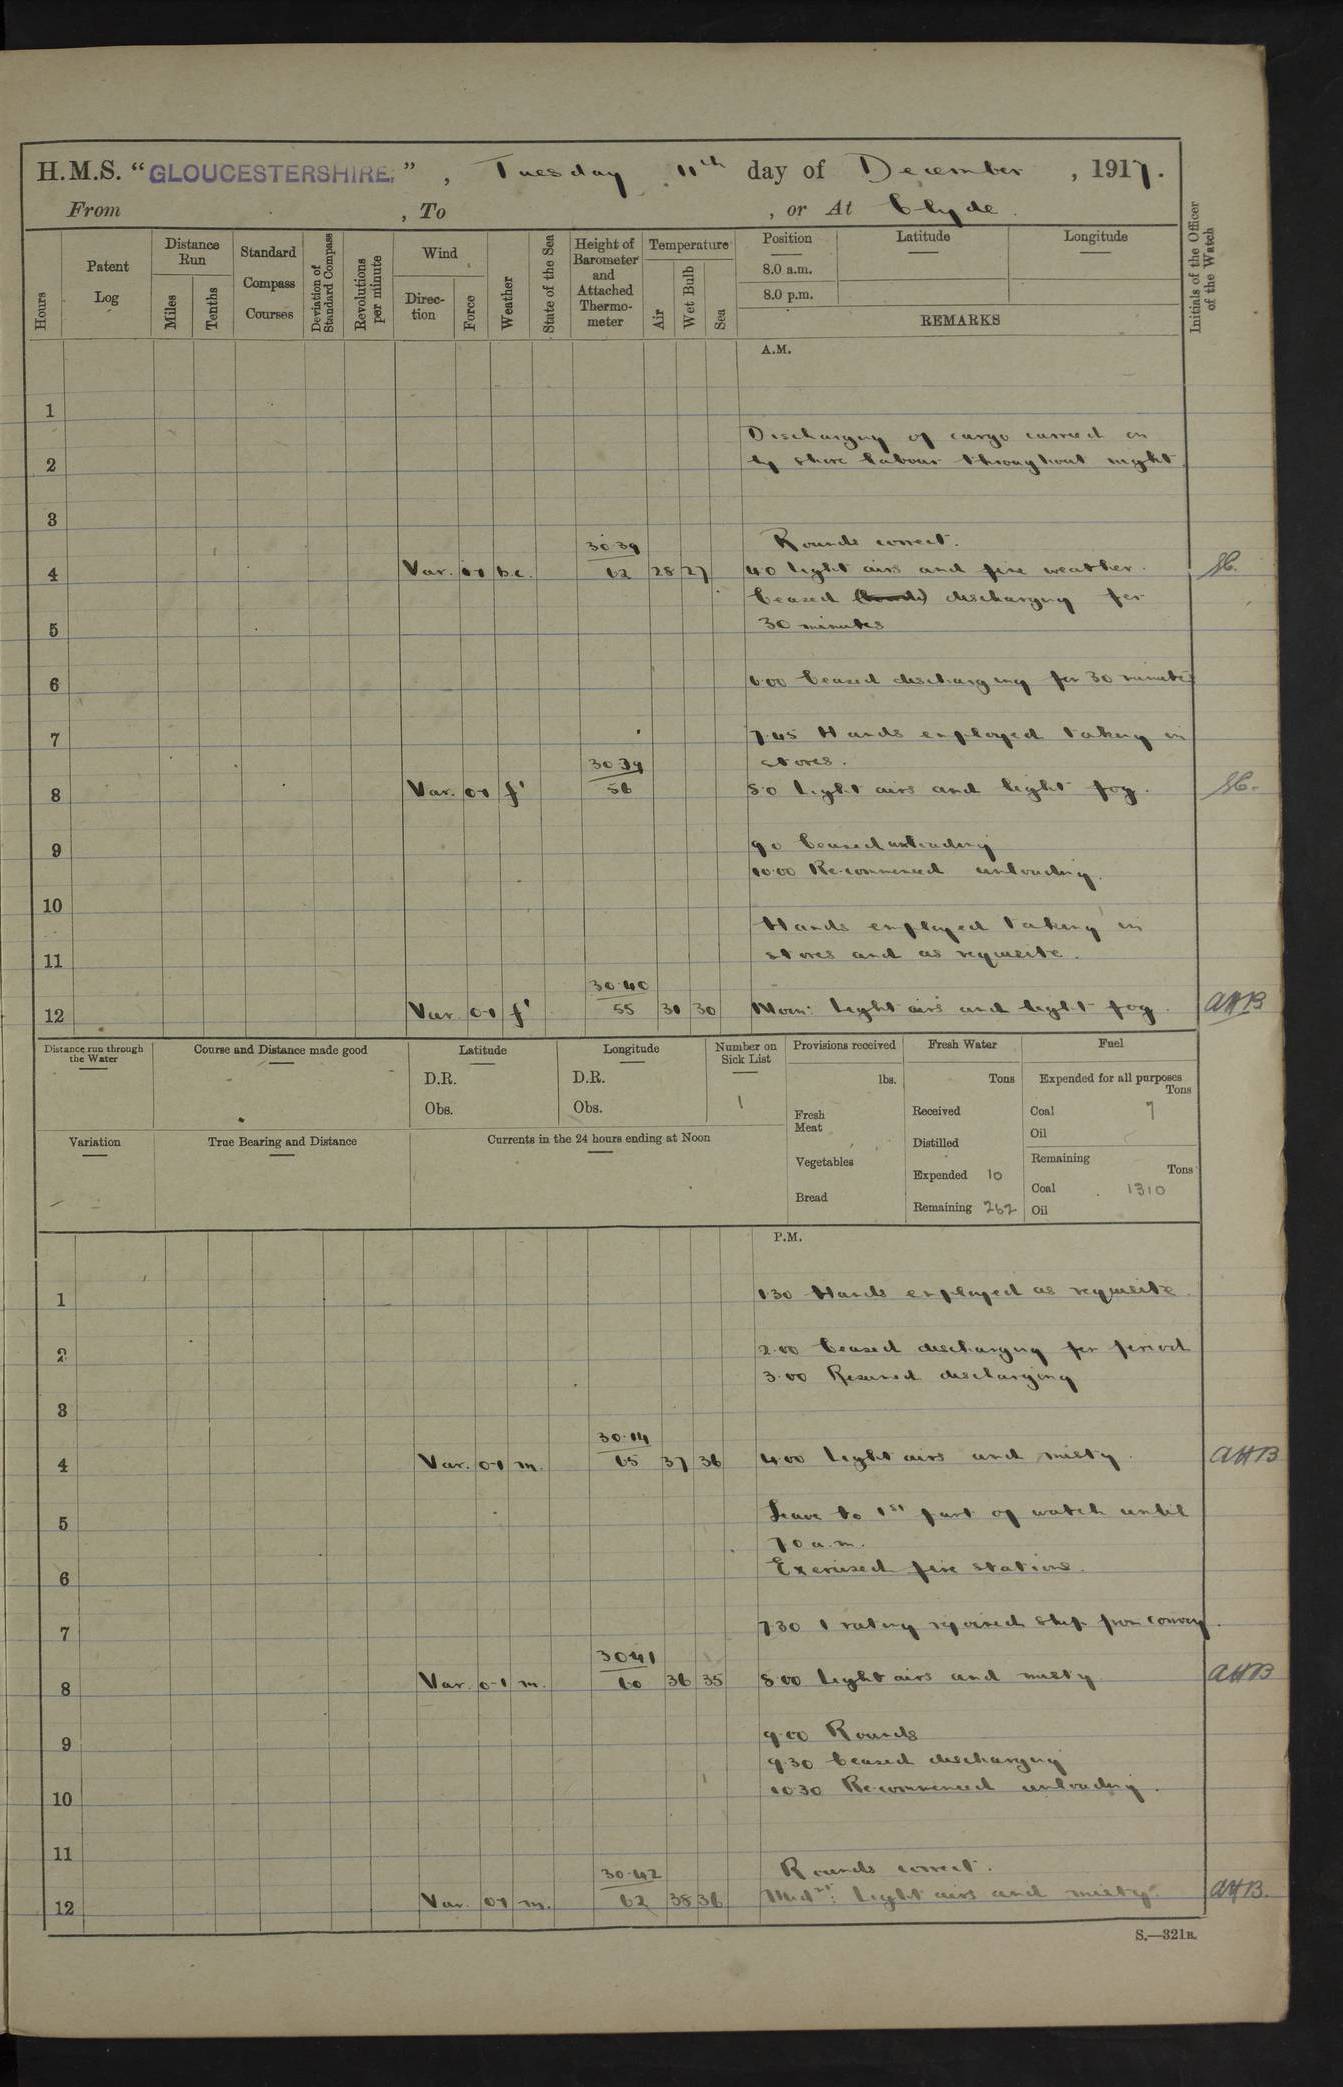 H.M.S. "GLOUCESTERSHIRE," , Tuesday 11th day of December , 1917.
From , To , or At Clyde.
Hours
Patent Log
Distance Run
Miles
Tenths
Standard Compass Courses
Deviation of Standard Compass
Revolutions per minute
Wind
Direction
Force
Weather
State of the Sea
Height of Barometer and Attached Thermometer
Temperature
Air
Wet Bulb
Sea
Position
8.0 a.m.
8.0 p.m.
Latitude
Longitude
REMARKS
Initials of the Officer of the Watch
A.M.
1
Discharging of cargo carried on
2 by shore labour throughout night
3
Rounds correct.
30.39
4 Var. 0-1 b.c. 62 28 27 4.0 light airs and fine weather.
Ceased discharging for
5 30 minutes
6 6.00 Ceased discharging for 30 minutes
7 7.45 Hands employed taking in
30.39 stores.
8 Var. 0-1 f' 56 8.0 Light airs and light fog.
9 9.0 Ceased unloading
10.00 Re-commenced unloading.
10
Hands employed taking in
11 stores and as requisite.
30.40
12 Var 0-1 f' 55 30 Noon: Light airs and light fog. AHB
Distance run through the Water
Course and Distance made good
Latitude
D.R.
Obs.
Longitude
D.R.
Obs.
Number on Sick List
1
Provisions received
lbs.
Fresh Meat
Vegetables
Bread
Fresh Water
Tons
Received
Distilled
Expended 10
Remaining 262
Fuel
Expended for all purposes
Tons
Coal 7
Oil
Remaining
Tons
Coal 1310
Oil
Variation
True Bearing and Distance
Currents in the 24 hours ending at Noon
P.M.
1 1.30 Hands employed as requisite.
2 2.00 Ceased discharging for period
3.00 Resumed discharging
3
4 Var. 0-1 m. 65 37 36 4.00 Light airs and misty. AHB
Leave to 1st part of watch until
5
7.0 a.m.
6 Exercised fire stations.
7 7.30 1 rating rejoined ship from convoy.
30.41
8 Var. 0-1 m. 60 36 35 8.00 Light airs and misty AHB
9 9.00 Rounds
9.30 Ceased discharging
10 10.30 Re-commenced unloading.
11
30.42 Rounds correct.
12 Var. 0-1 m. 62 38 36 Midnt: Light airs and misty. AHB.
S.—321B.